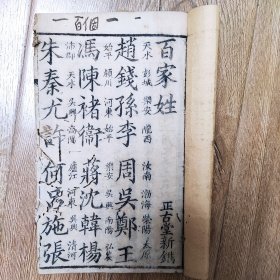 百家姓
正古堂新鐫
天水 彭城 樂安 隴西 汝南 渤海 滎陽 太原
趙錢孫李 周吳鄭王
始平 潁川 河東 始平 樂安 吳興 南陽 弘農
馮陳褚衛 蔣沈韓楊
沛郡 天水 吳興 高陽 廬江 河東 吳興 清河
朱秦尤許 何呂施張
一百個一一